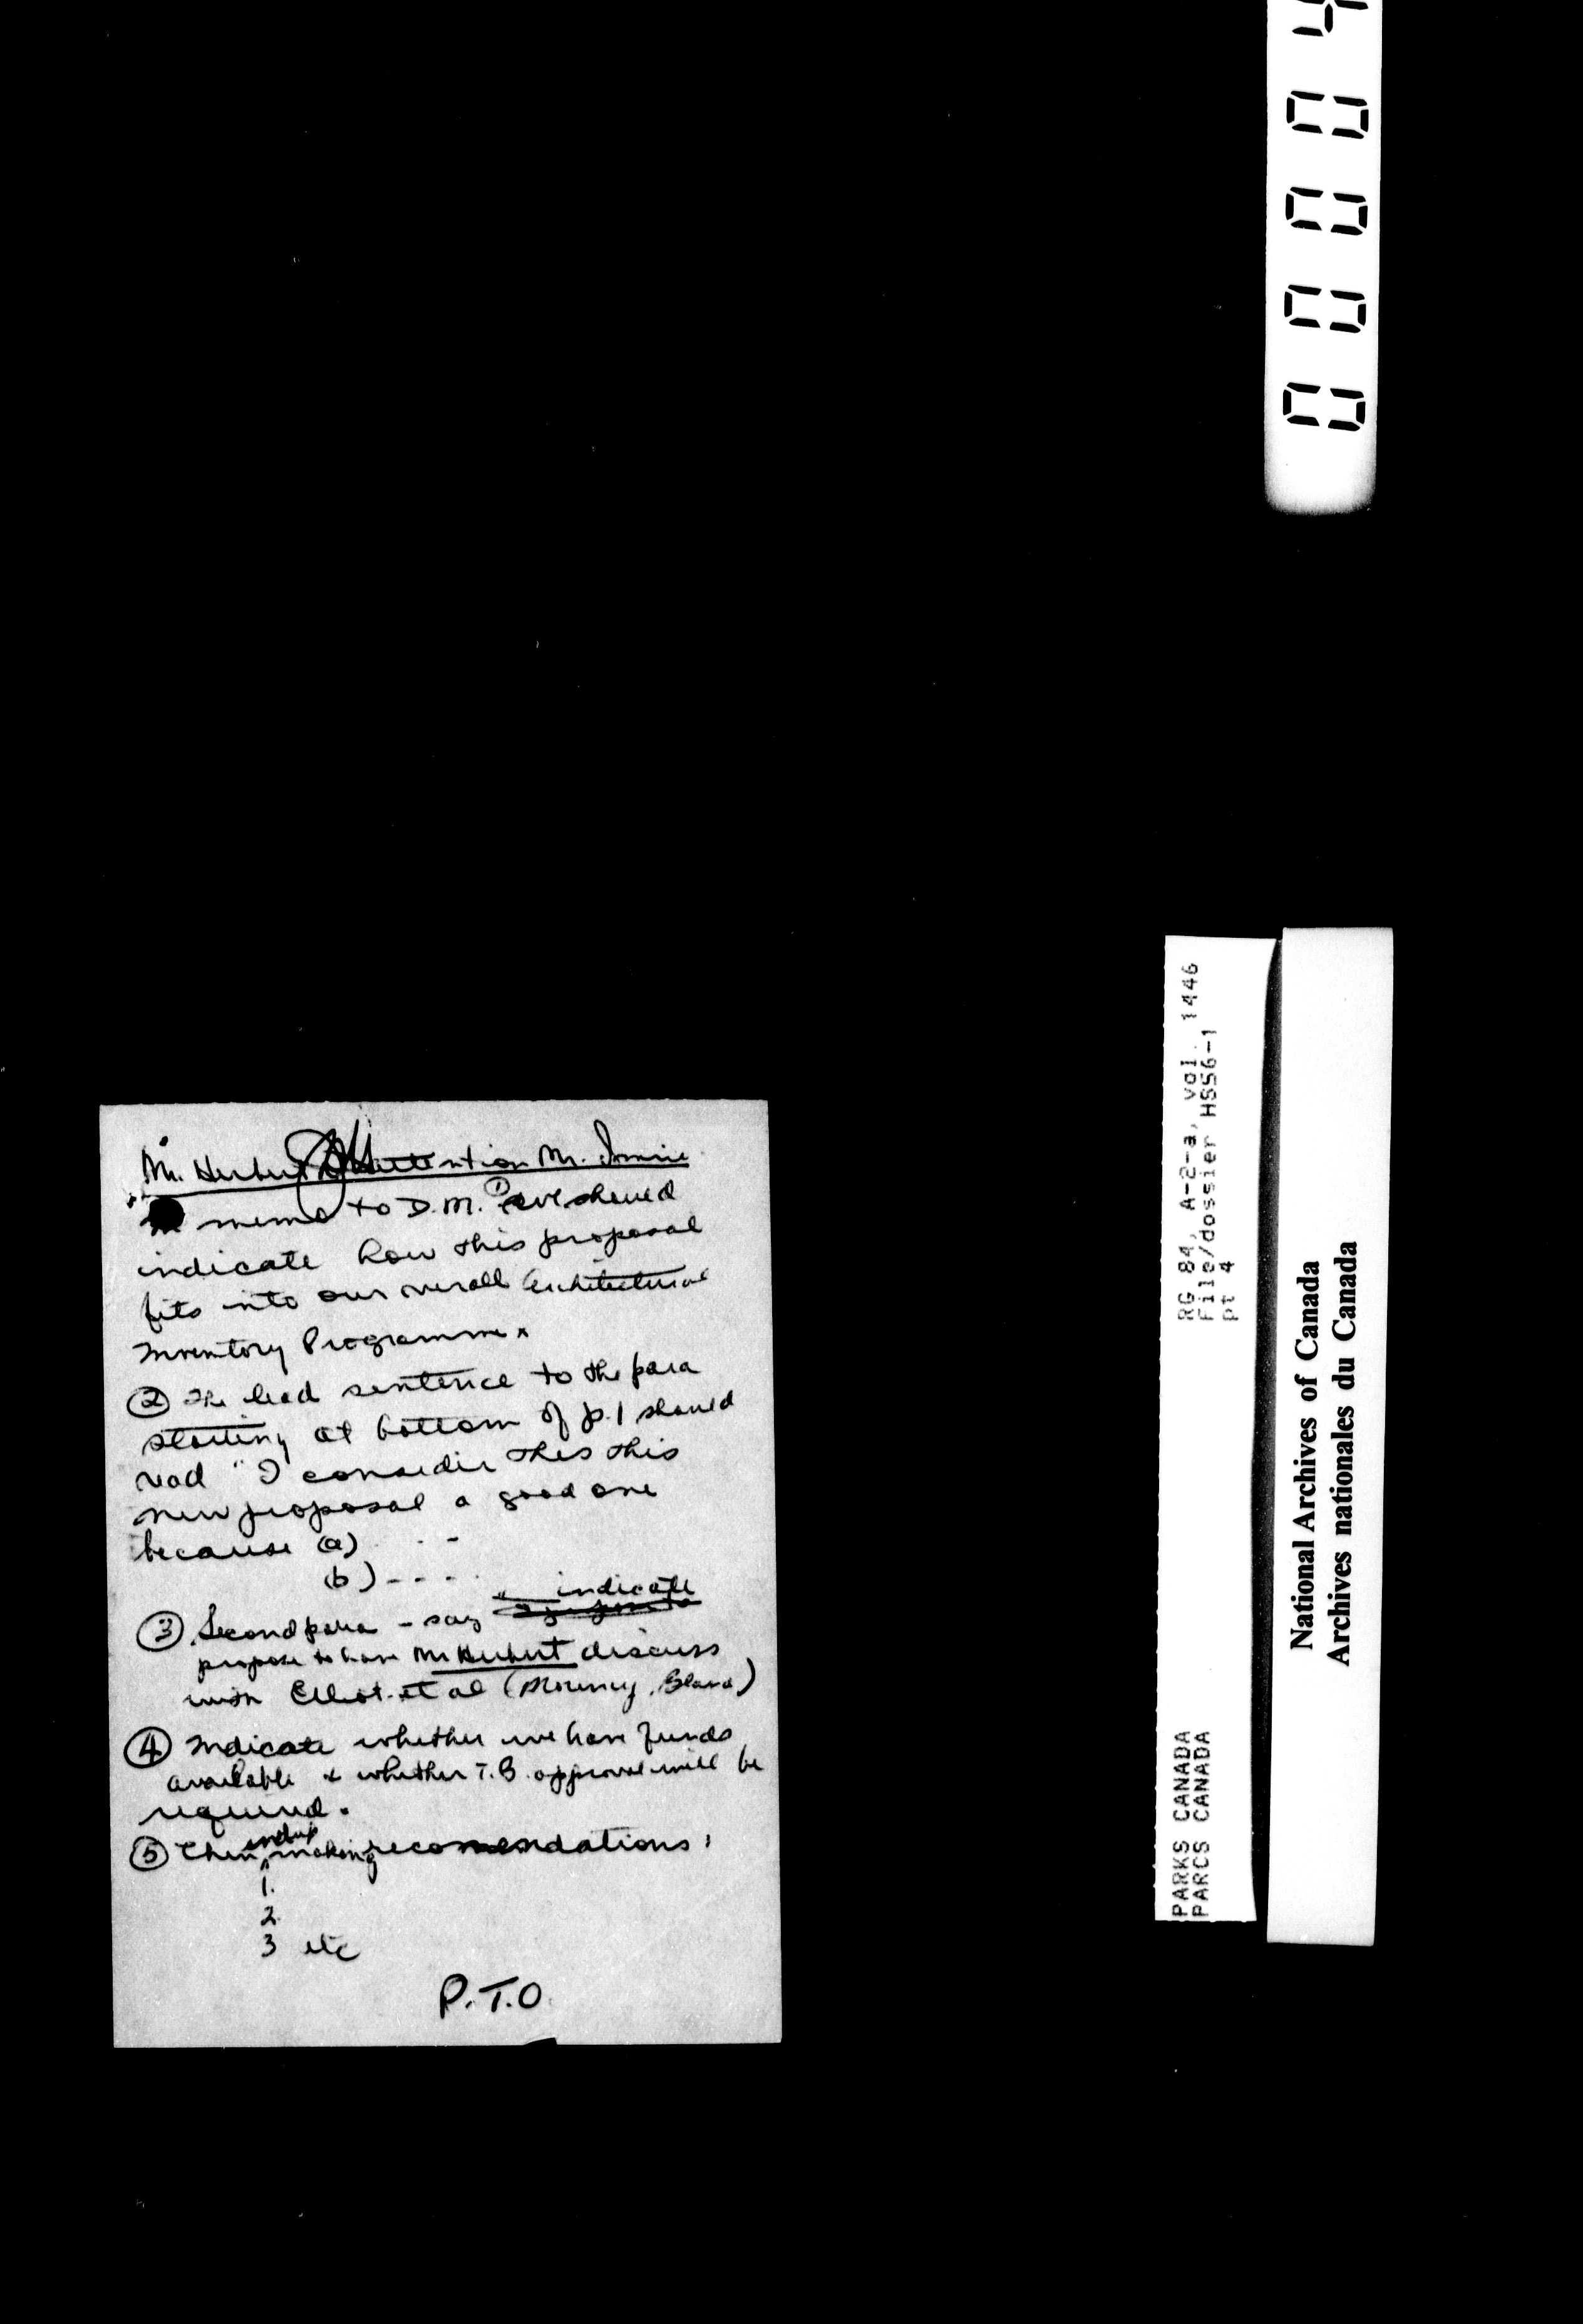 Mr. Herbert Attention Mr. Imrie
memo to D.M. ① we should
indicate how this proposal
fits into our overall Architectural
Inventory Programme.
② The lead sentence to the para
starting at bottom of p. 1 should
read "I consider this this
new proposal a good one
because (a) . . -
(b) - - - -
indicate
③ Second para - say
propose to have Mr Herbert discuss
with Elliot et al (Mouncy, Bland)
④ Indicate whether we have funds
available & whether T.B. approval will be
required.
⑤ Then making recomendations,
1.
2.
3 etc
P.T.O.
0 0 0 0 4
RG 84, A-2-a, vol. 1446
File/dossier HSS6-1
pt 4
PARKS CANADA
PARCS CANADA
National Archives of Canada
Archives nationales du Canada